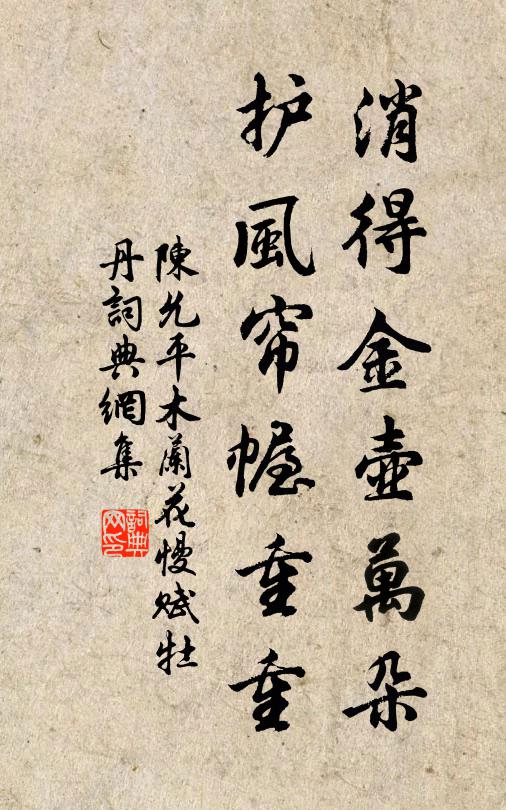 消得金壺萬朵
护風帘幄重重
陳允平木蘭花慢赋牡
丹詞典網集
詞典
网印